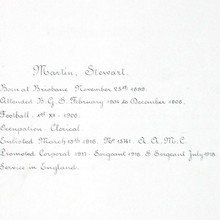 Martin, Stewart.
Born at Brisbane November 25th 1888.
Attended B. G. S. February 1904 to December 1906.
Football. 1st XV. 1906.
Occupation. Clerical
Enlisted March 15th 1916. No 15761. A. A. M. C.
Promoted Corporal 1917. Sergeant 1918. S. Sergeant July 1918.
Service in England.